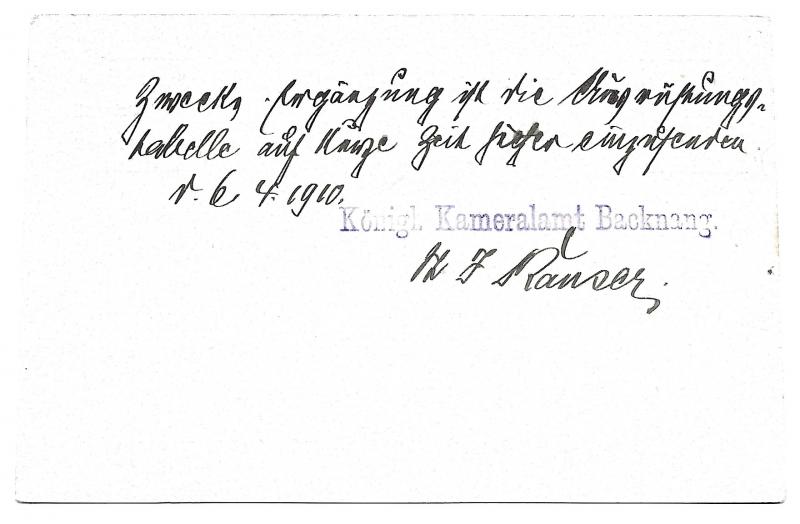 Zwecks Ergänzung ist die
tabelle auf kurze Zeit hieher einzusenden.
d. 6. 4. 1910.
Königl. Kameralamt Backnang.